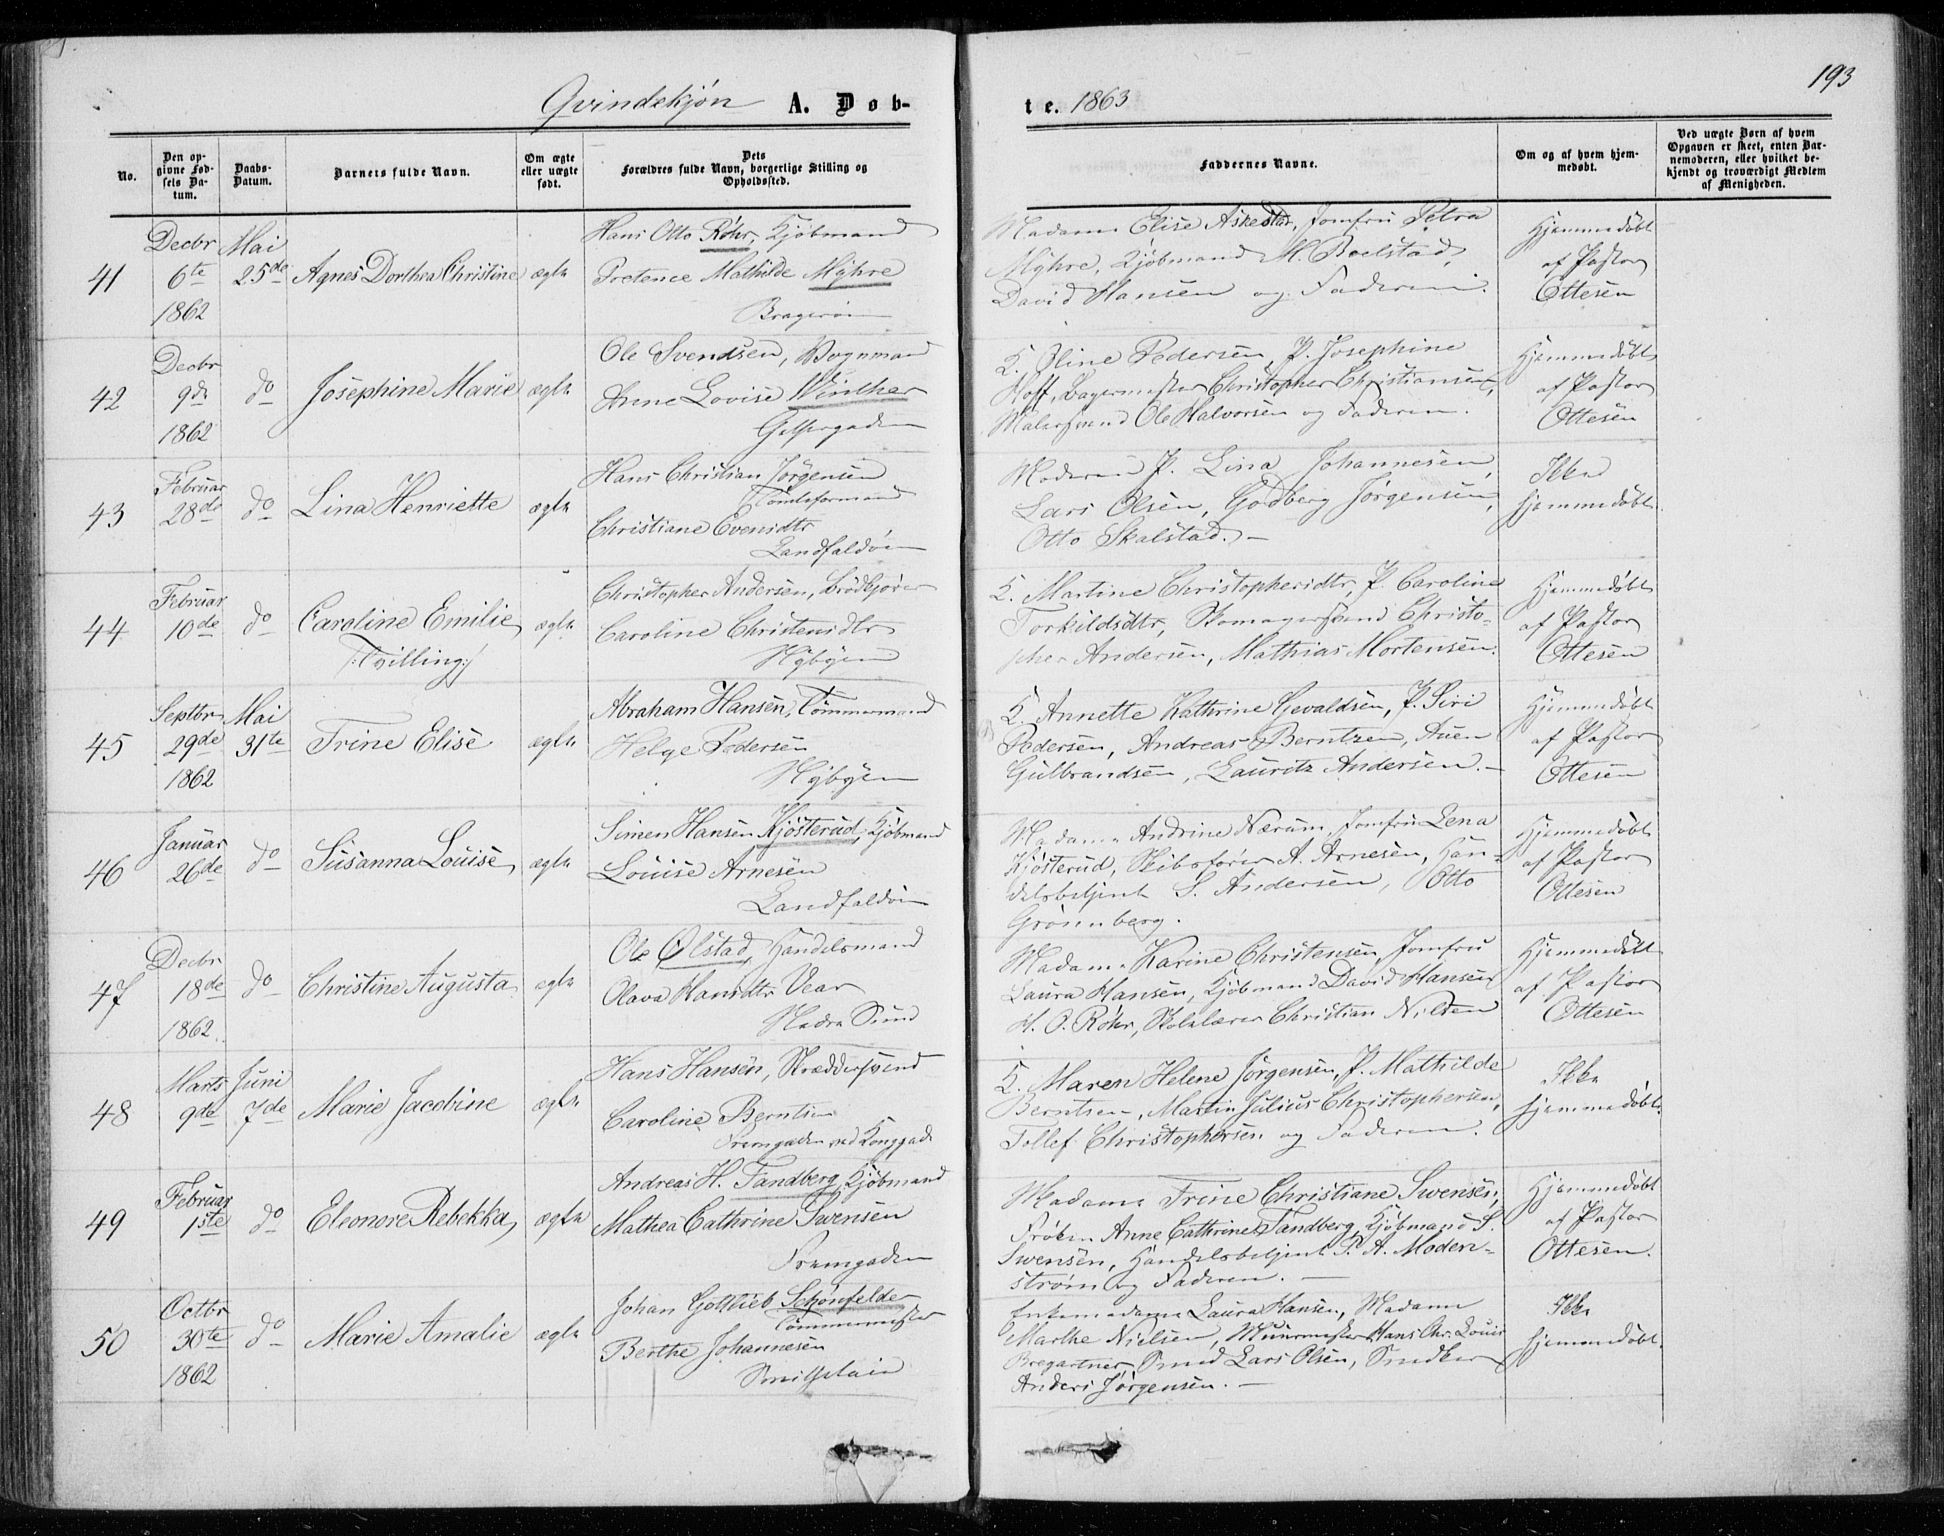 193
Qvindekjøn A. Døb-
te. 1863
No.
Den op-
givne Fød-
sels Da-
tum.
Daabs-
Datum.
Barnets fulde Navn.
Om ægte
eller uægte
født.
Dets
Forældres fulde Navn, borgerlige Stilling og
Opholdssted.
Faddernes Navne.
Om og af hvem hjem-
medøbt.
Ved uægte Børn af hvem
Opgaven er skeet, enten Bar-
nemoderen, eller hvilket be-
kjendt og troværdigt Medlem
af Menigheden.
41
Decbr
6te
1862
Mai
25de
Agnes Dorthea Christine
ægte
Hans Otto Röhr, Kjöbmand
Pretence Mathilde Myhre
Bragerøen
Madame Elise Askestør, Jomfru Petra
Myhre, Kjöbmand M. Boelstad,
David Hansen og Faderen.
Hjemmedøbt
af Pastor
Ottesen
42
Decbr
9de
1862
do
Josephine Marie
ægte
Ole Svendsen, Vognmand
Anne Lovise Winther
Gjethergaden
K. Oline Pedersen, P. Josephine
Hoff, Bagermester Christopher Christiansen,
Malersvend Ole Halvorsen og Faderen.
Hjemmedøbt
af Pastor
Ottesen
43
Februar
28de
do
Lina Henriette
ægte
Hans Christian Jörgensen
Tomteformand
Christiane Evensdtr
Landfaldöen
Moderen P. Lina Johannesen,
Lars Olsen, Godberg Jørgensen,
Otto Skalstad. —
Ikke
hjemmedøbt.
44
Februar
10de
do
Caroline Emilie
/: Tvilling :/
ægte
Christopher Andersen, Brödkjører
Caroline Christensdtr
Nybyen
K. Martine Christophersdtr, P. Caroline
Torkildsdtr, Skomagersvend Christo-
pher Andersen, Mathias Mortensen.
Hjemmedøbt
af Pastor
Ottesen
45
Septbr
29de
1862
Mai
31te
Trine Elise
ægte
Abraham Hansen, Tömmermand
Helge Pedersen
Nybyen
K. Annette Kathrine Gevaldsen, P. Siri
Pedersen, Andreas Berntzen, Auen
Gulbrandsen, Lauritz Andersen. —
Hjemmedøbt
af Pastor
Ottesen
46
Januar
26de
do
Susanna Louise
ægte
Simen Hansen Kjösterud, Kjöbmand
Louise Arnesen
Landfaldöen
Madame Andrine Nærum, Jomfru Lena
Kjösterud, Skibsfører A. Arnesen, Han-
delsbetjent S. Andersen, Otto
Grönnberg.
Hjemmedøbt
af Pastor
Ottesen
47
Decbr
18de
1862.
do
Christine Augusta
ægte
Ole Ölstad, Handelsmand
Olava Hansdtr Vear
Nedre Sund
Madame Karine Christensen, Jomfru
Laura Hansen, Kjöbmand David Hansen
H. O. Röhr, Skolelærer Christian Nilsen
Hjemmedøbt
af Pastor
Ottesen
48
Marts
9de
Juni
7de
Marie Jacobine
ægte
Hans Hansen, Skræddersvend
Caroline Berntsen
Tremgaden ved Konggad.
K. Maren Helene Jørgensen, P. Mathilde
Berntsen, Martin Julius Christophersen,
Tollef Christophersen og Faderen.
Ikke
hjemmedøbt.
49
Februar
1ste
do
Eleonore Rebekka
ægte
Andreas H. Tandberg, Kjöbmand
Mathea Cathrine Swensen
Tremgaden
Madame Trine Christiane Swensen,
Fröken Anne Cathrine Tandberg, Kjöbmand S.
Swensen, Handelsbetjent P. A. Moden-
ström og Faderen. —
Hjemmedøbt
af Pastor
Ottesen.
50
Octbr
30te
1862
do
Marie Amalie
ægte
Johan Gottlieb Schönfelder
Tömmermester
Berthe Johannesen
Smithstuen
Enkemadame Laura Hansen, Madame
Marthe Nielsen, Muurmester Hans Chr. Louis
Bregartner, Smed Lars Olsen, Snedker
Anders Jørgensen. —
Ikke
hjemmedøbt.